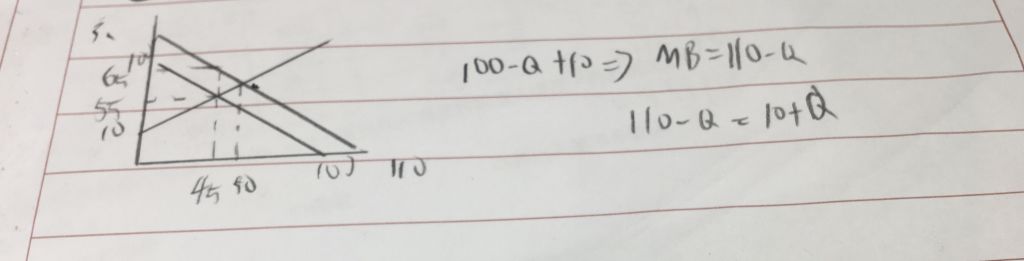 5.
100-Q+10 => MB=110-Q
65
55
110-Q = 10+Q
10
45 50
100 110